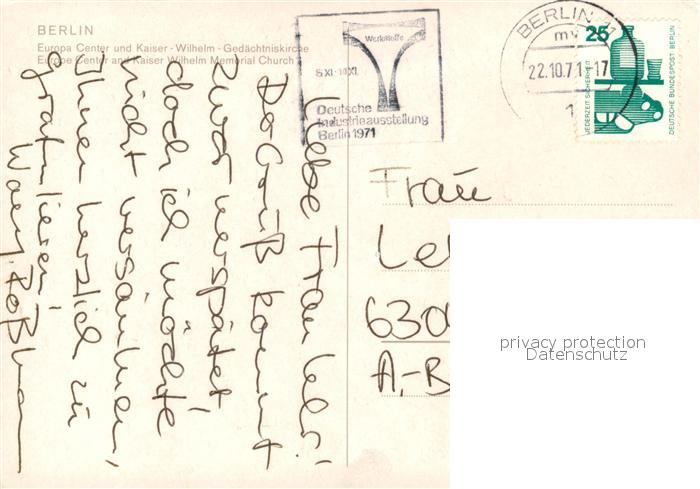 BERLIN
Europa Center und Kaiser - Wilhelm - Gedächtniskirche
Europe Center and Kaiser Wilhelm Memorial Church
Werkstoffe
5.XI.-14.XI.
Deutsche
Industrieausstellung
Berlin 1971
BERLIN 11
mv
22.10.71-17
1
25
JEDERZEIT SICHERHEIT
DEUTSCHE BUNDESPOST BERLIN
Liebe Frau
Gruß kommt
zwar verspätet
doch ich möchte
nicht versäumen
Ihnen herzlich zu
gratulieren!
Frau
Le
630
A.-B
privacy protection
Datenschutz